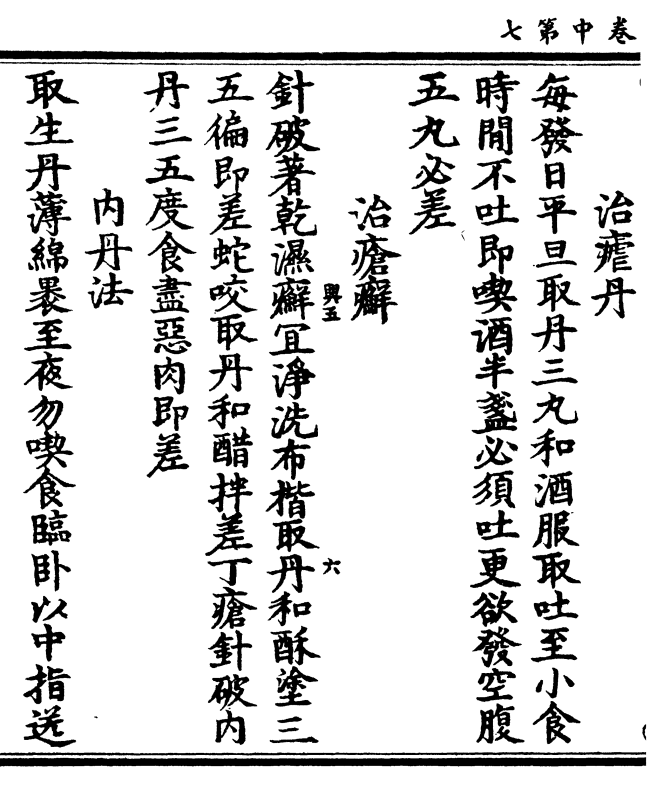 卷中第七
治瘧丹
每發日平旦取丹三丸和酒服取吐至小食
時間不吐即喫酒半盞必須吐更欲發空腹
五丸必差
治瘡癬
興五
六
針破著乾濕癬宜淨洗布揩取丹和酥塗三
五徧即差蛇咬取丹和醋拌差丁瘡針破内
丹三五度食盡惡肉即差
内丹法
取生丹薄綿褁至夜勿喫食臨卧以中指送